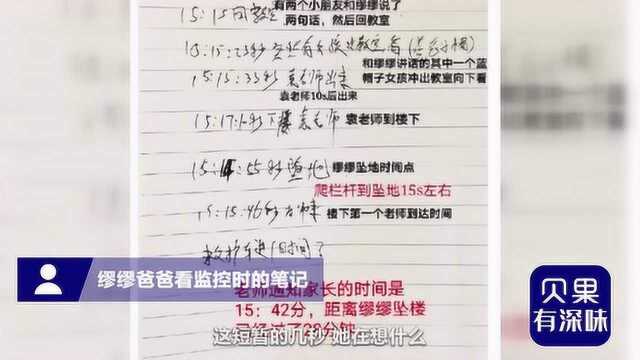 有两个小朋友和缪缪说了
15:15回教室 两句话，然后回教室
和缪缪讲话的其中一个蓝
帽子女孩冲出教室向下看
15:15:33秒袁老师出来
袁老师10s后出来
袁老师到楼下
15:14:55秒坠地 缪缪坠地时间点
爬栏杆到坠地15s左右
15:15:46秒 楼下第一个老师到达时间
缪缪爸爸看监控时的笔记
老师通知家长的时间是
15：42分，距离缪缪坠楼
已经过了28分钟
这短暂的几秒 她在想什么
贝果
有深味